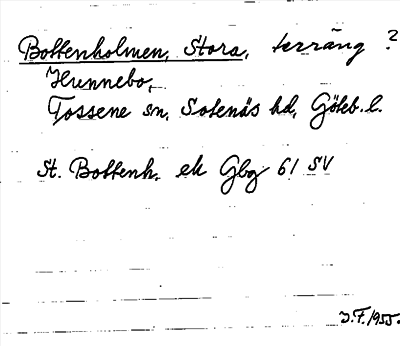 Bottenholmen, Stora, terräng ?
Hunnebo,
Tossene sn, Sotenäs hd, Göteb. l.
St. Bottenh. ek Gbg 61 SV
J.F. 1955.